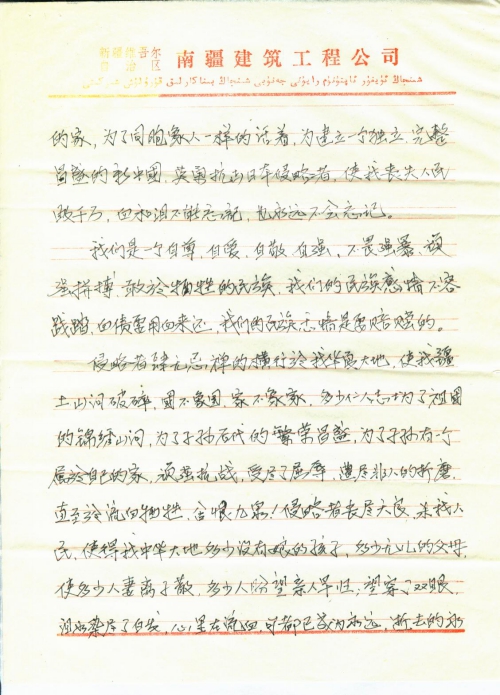 新疆维吾尔
自治区
南疆建筑工程公司
的家，为了同胞象人一样的活着，为建立一个独立，完整
昌盛的新中國，英勇抗击日本侵略者，使我丧失人民
血和泪不能忘记，也永远不会忘记。
我们是一个自尊，自爱，自敬，自强，不畏强暴，顽
强拼搏，敢於牺牲的民族，我们的民族感情不容
践踏，血债要用血来还，我们的民族感情是要赔赎的。
侵略者肆无忌禅的横行於我华夏大地，使我疆
土山河破碎，國不象國，家不象家，多少仁人志士为了祖國
的锦绣山河，为了子孙后代的繁荣昌盛，为了子孙有一个
属於自己的家，顽强抗战，受尽了屈辱，遭尽非人的折磨，
直至於流血牺牲，含恨九泉！侵略者丧尽天良，杀我人
民，使得我中华大地多少没有娘的孩子，多少无儿的父母，
使多少人妻离子散，多少人盼望亲人早归，望穿了双眼，
泪水染尽了白发，心里在流血，可都已成为永远，逝去的永